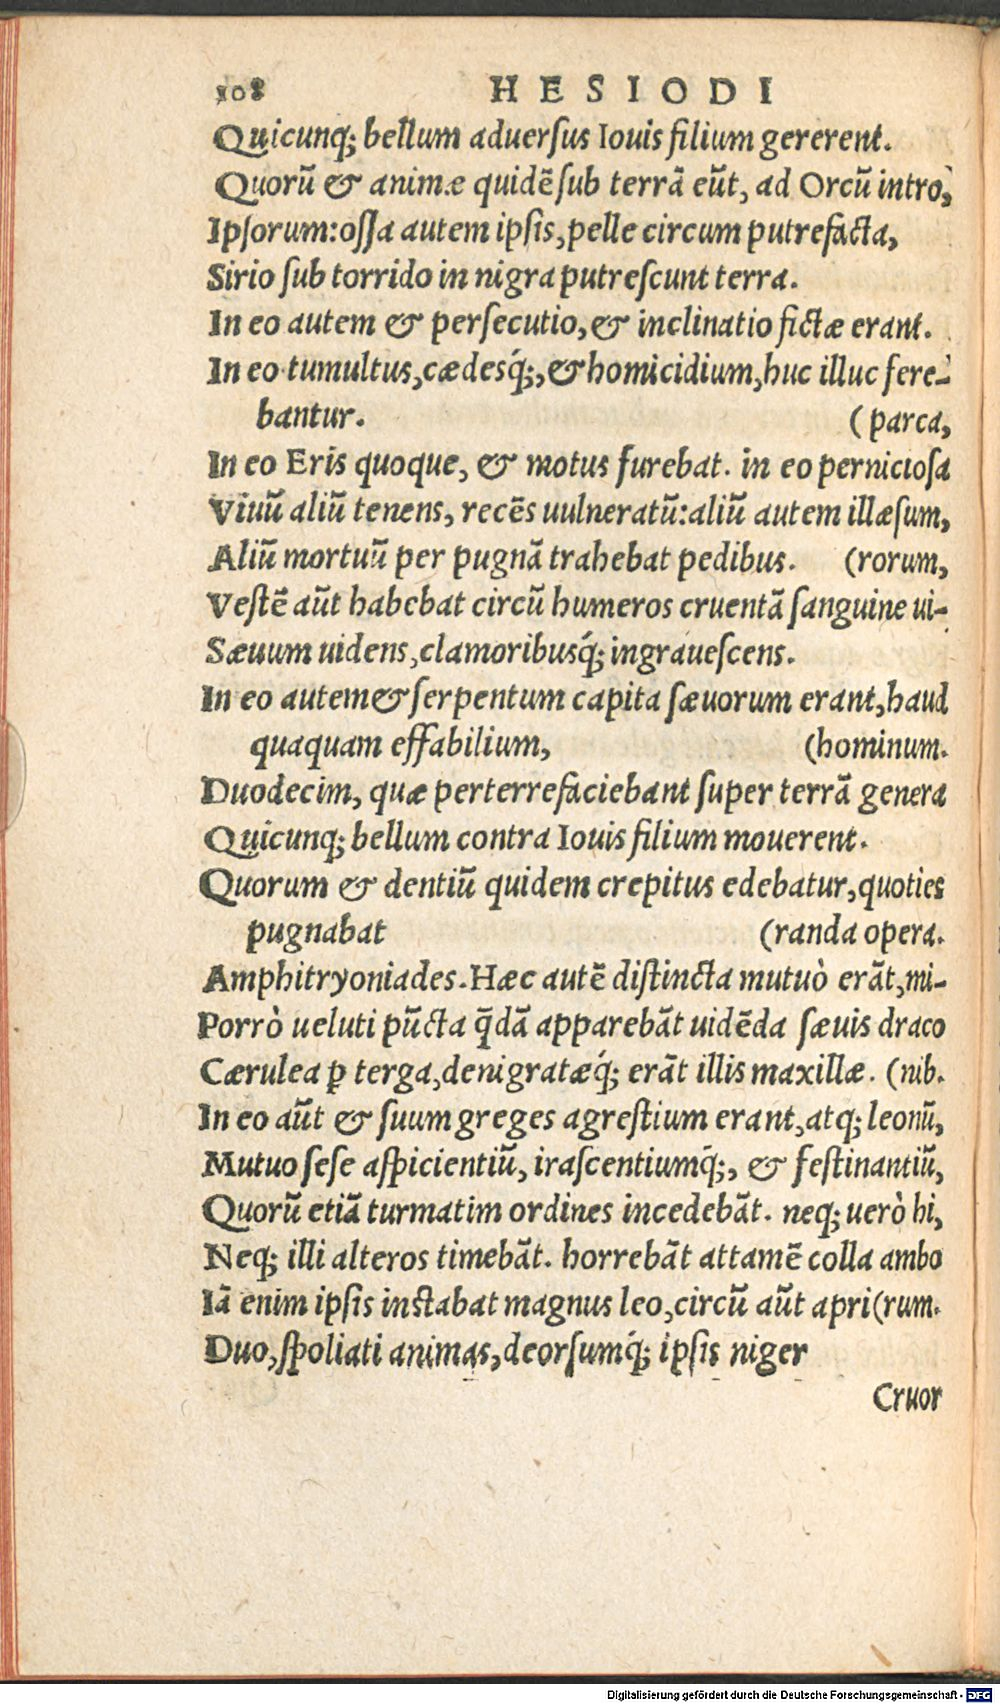 108 HESIODI
Quicunq; bellum aduersus Iouis filium gererent.
Quorũ & animæ quidẽ sub terrã eũt, ad Orcũ intro,
Ipsorum: ossa autem ipsis, pelle circum putrefacta,
Sirio sub torrido in nigra putrescunt terra.
In eo autem & persecutio, & inclinatio fictæ erant.
In eo tumultus, cædesq́;, & homicidium, huc illuc fere-
bantur. (parca,
In eo Eris quoque, & motus furebat. in eo perniciosa
Viuũ aliũ tenens, recẽs uulneratũ: aliũ autem illæsum,
Aliũ mortuũ per pugnã trahebat pedibus. (rorum,
Vestẽ aũt habebat circũ humeros cruentã sanguine ui-
Sæuum uidens, clamoribusq́; ingrauescens.
In eo autem & serpentum capita sæuorum erant, haud
quaquam effabilium, (hominum.
Duodecim, quæ perterrefaciebant super terrã genera
Quicunq; bellum contra Iouis filium mouerent.
Quorum & dentiũ quidem crepitus edebatur, quoties
pugnabat (randa opera.
Amphitryoniades. Hæc autẽ distincta mutuò erãt, mi-
Porrò ueluti pũcta q̃dã apparebãt uidẽda sæuis draco
Cærulea ꝑ terga, denigratæq́; erãt illis maxillæ. (nib.
In eo aũt & suum greges agrestium erant, atq; leonũ,
Mutuo sese aspicientiũ, irascentiumq́;, & festinantiũ,
Quorũ etiã turmatim ordines incedebãt. neq; uerò hi,
Neq; illi alteros timebãt. horrebãt attamẽ colla ambo
Iã enim ipsis instabat magnus leo, circũ aũt apri (rum.
Duo, spoliati animas, deorsumq́; ipsis niger
Cruor
Digitalisierung gefördert durch die Deutsche Forschungsgemeinschaft - DFG